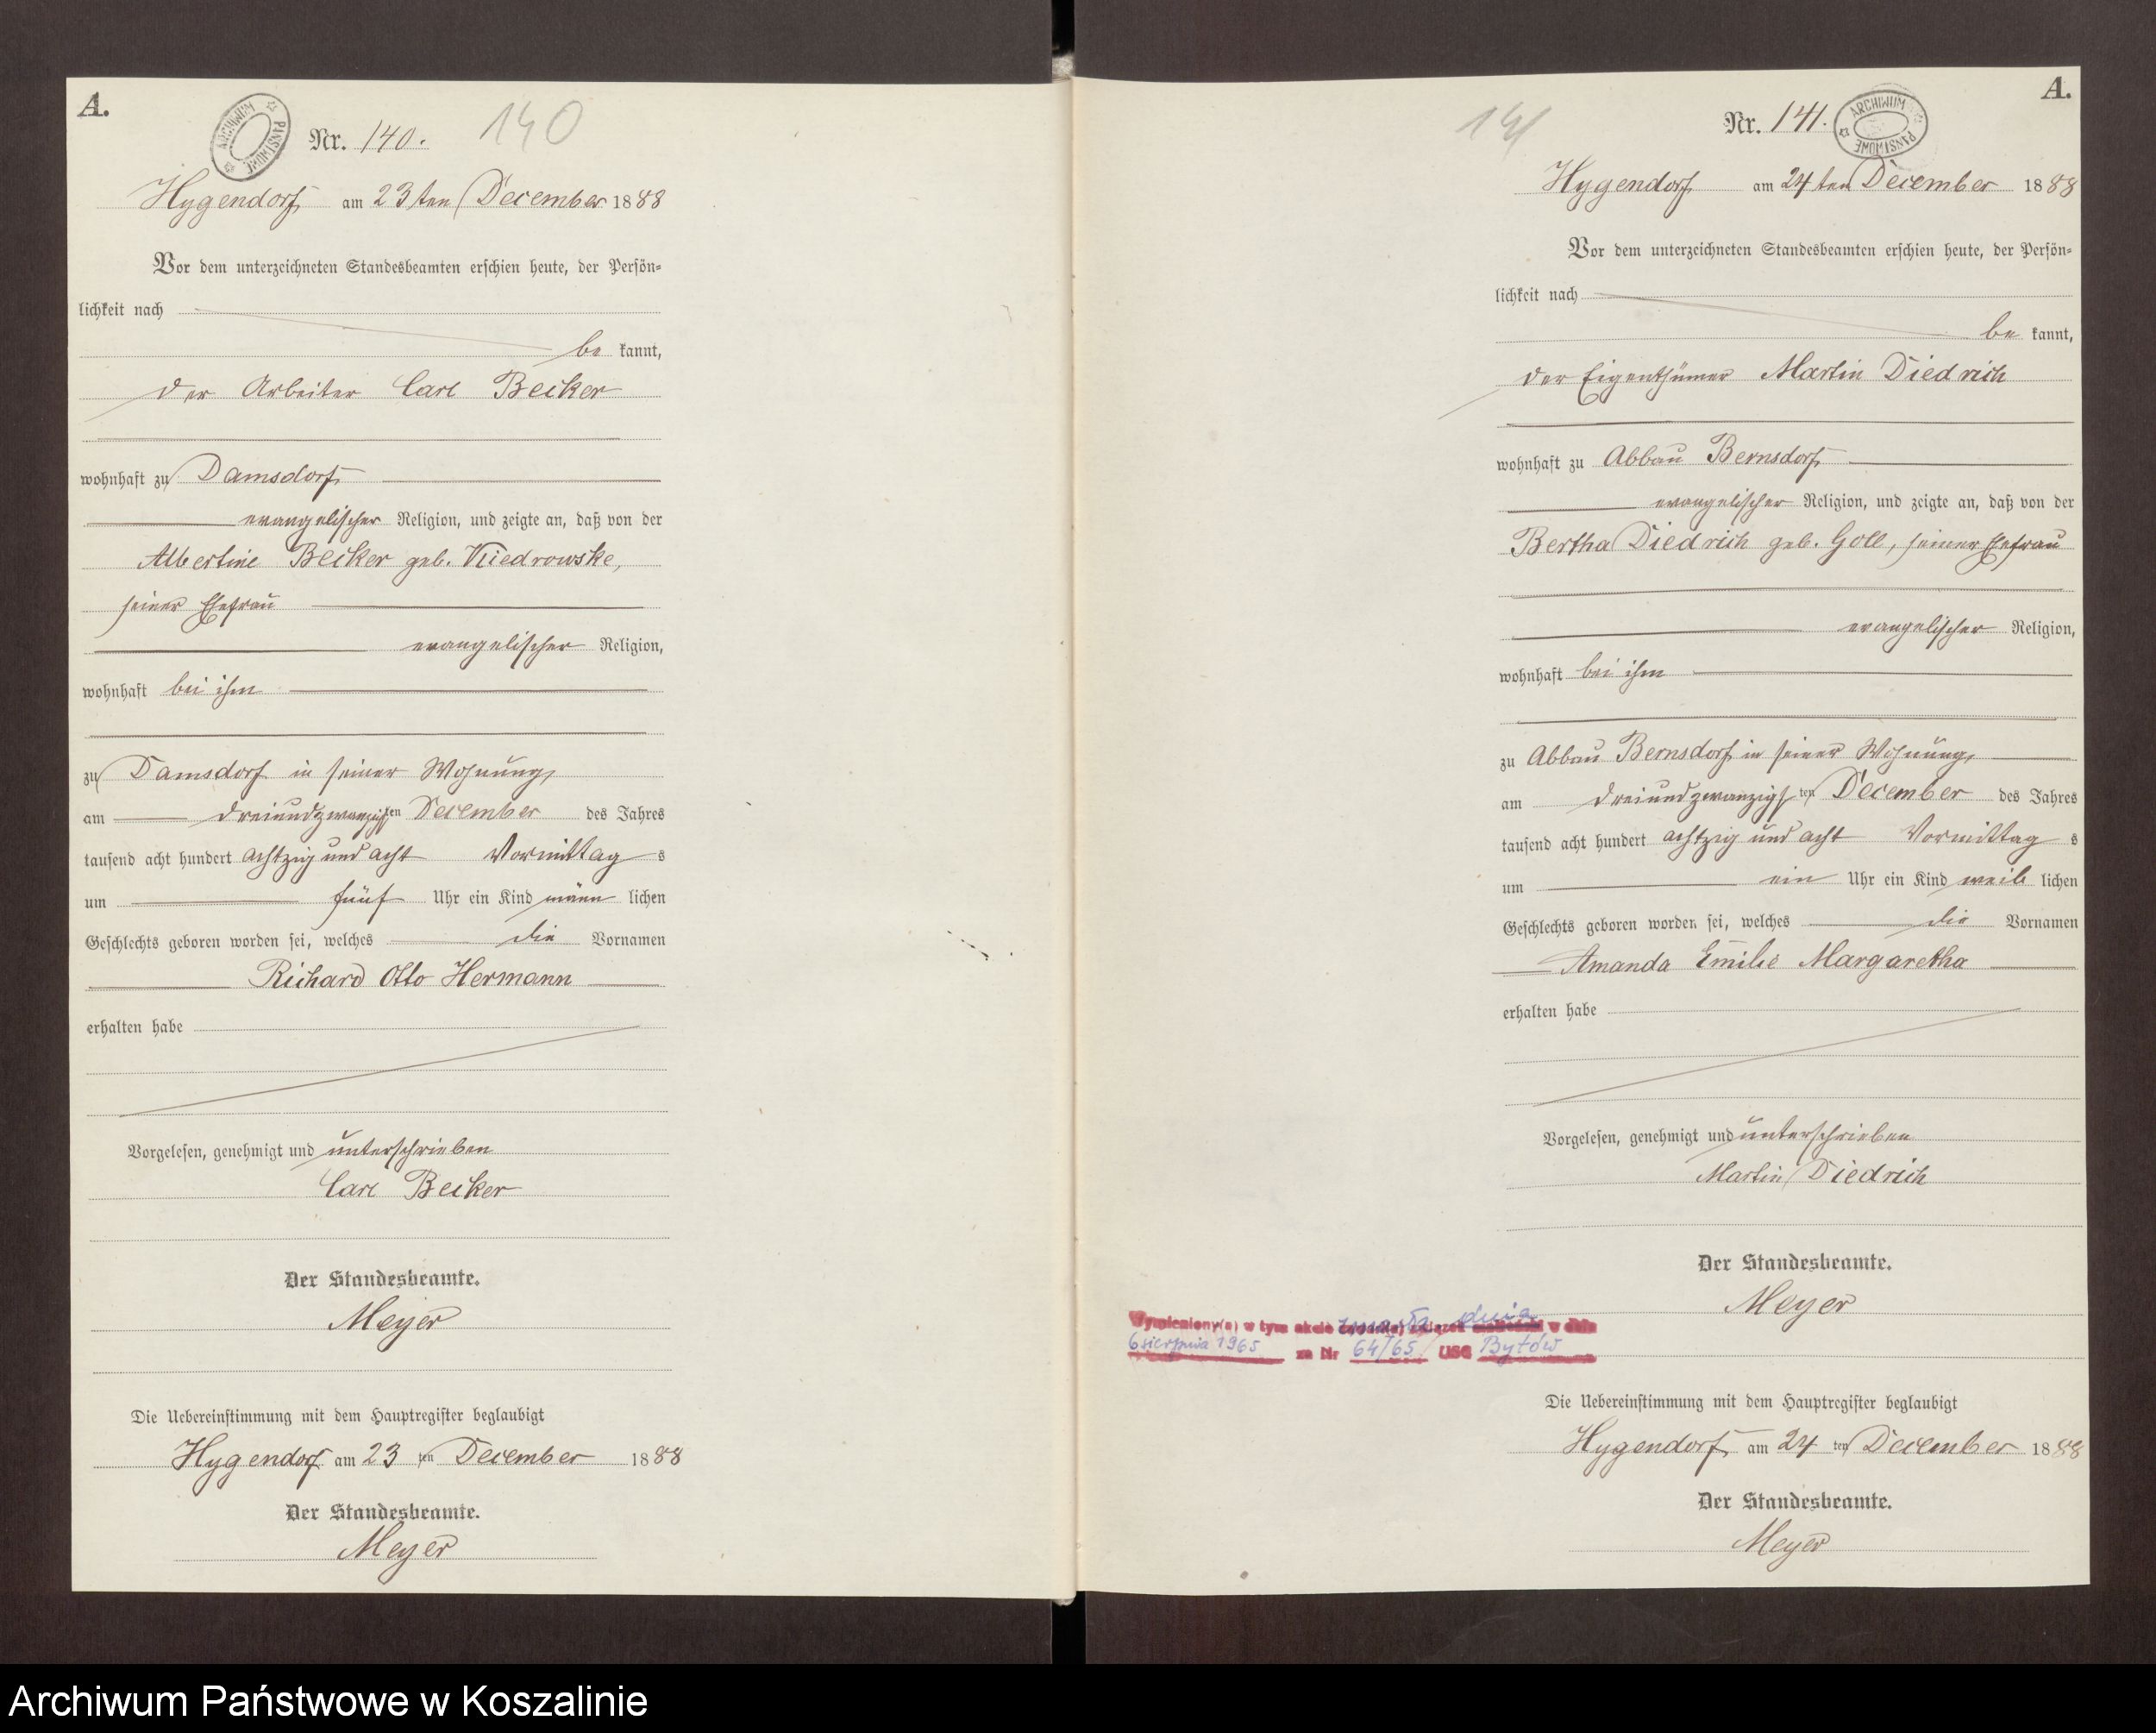 A.
ARCHIWUM PAŃSTWOWE
Nr. 140.
140
Hygendorf am 23ten December 1888
Vor dem unterzeichneten Standesbeamten erschien heute, der Persön-
lichkeit nach
be kannt,
der Arbeiter Carl Becker
wohnhaft zu Damsdorf
evangelischer Religion, und zeigte an, daß von der
Albertine Becker geb. Kiedrowske,
seiner Ehefrau
evangelischer Religion,
wohnhaft bei ihm
zu Damsdorf in seiner Wohnung,
am dreiundzwanzigsten December des Jahres
tausend acht hundert achtzig und acht Vormittag s
um fünf Uhr ein Kind männ lichen
Geschlechts geboren worden sei, welches die Vornamen
Richard Otto Hermann
erhalten habe
Vorgelesen, genehmigt und unterschrieben
Carl Becker
Der Standesbeamte.
Meyer
Die Uebereinstimmung mit dem Hauptregister beglaubigt
Hygendorf am 23 ten December 1888
Der Standesbeamte.
Meyer
A.
141
Nr. 141.
ARCHIWUM PAŃSTWOWE
Hygendorf am 24ten December 1888
Vor dem unterzeichneten Standesbeamten erschien heute, der Persön-
lichkeit nach
be kannt,
der Eigenthümer Martin Diedrich
wohnhaft zu Abbau Bernsdorf
evangelischer Religion, und zeigte an, daß von der
Bertha Diedrich geb. Goll, seiner Ehefrau
evangelischer Religion,
wohnhaft bei ihm
zu Abbau Bernsdorf in seiner Wohnung,
am dreiundzwanzigsten December des Jahres
tausend acht hundert achtzig und acht Vormittag s
um ein Uhr ein Kind weib lichen
Geschlechts geboren worden sei, welches die Vornamen
Amanda Emilie Margaretha
erhalten habe
Vorgelesen, genehmigt und unterschrieben
Martin Diedrich
Der Standesbeamte.
Meyer
Wymieniony(a) w tym akcie zmarła dnia
6 sierpnia 1965 za Nr 64/65 USC Bytów
Die Uebereinstimmung mit dem Hauptregister beglaubigt
Hygendorf am 24 ten December 1888
Der Standesbeamte.
Meyer
Archiwum Państwowe w Koszalinie